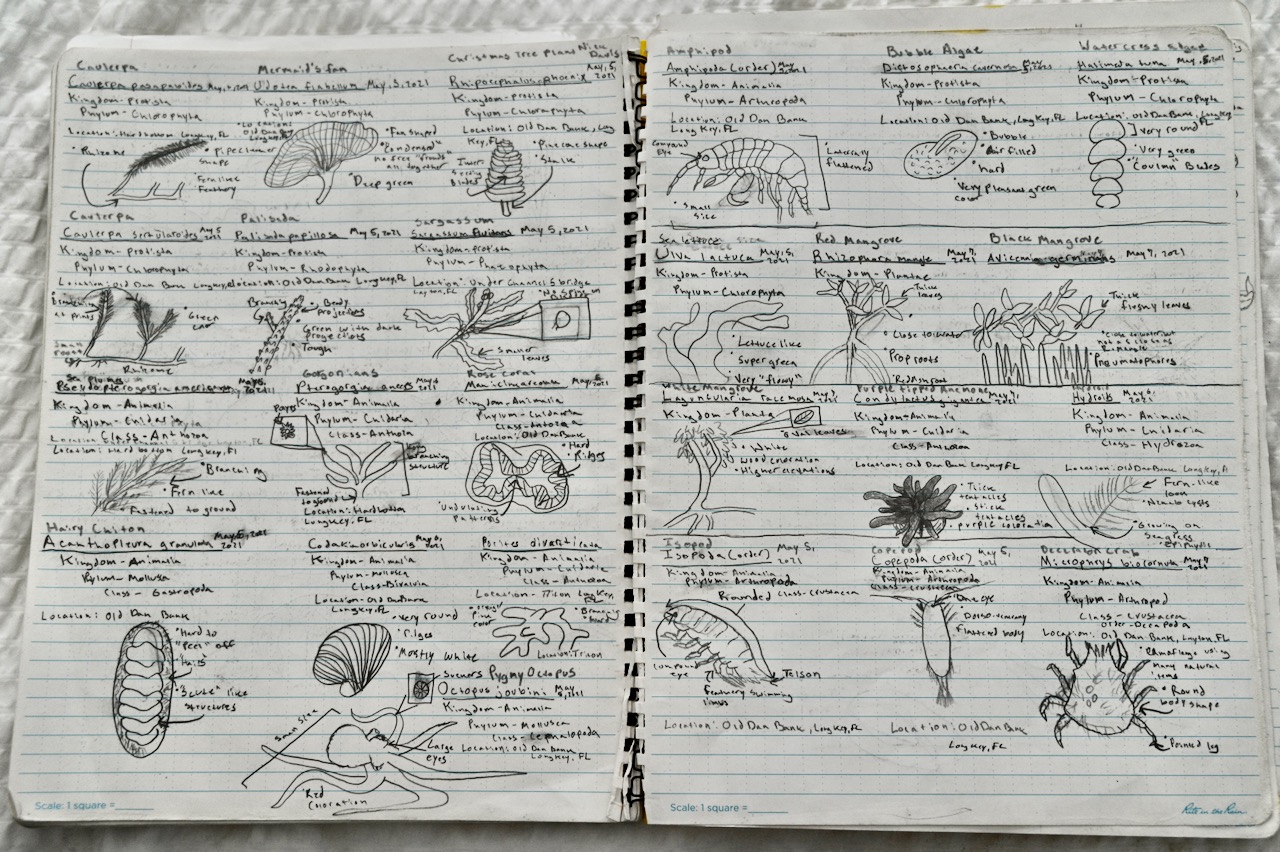 Caulerpa
Caulerpa paspaloides May 5, 2021
Kingdom-Protista
Phylum-Chlorophyta
Location: Hard bottom Longkey, FL
Rhizome
Pipecleaner shape
Fern like Feathery
Mermaid's fan
Udotea flabellum May 5, 2021
Kingdom-Protista
Phylum-Chlorophyta
Location: Old Dan Bank
Fan shaped
"Condensed"
no free "fronds"
all together
Deep green
Christmas Tree Plant
Nick Davis
Rhipocephalus phoenix May, 5, 2021
Kingdom-Protista
Phylum-Chlorophyta
Location: Old Dan Bank, Long Key, FL
Pinecone shape
Stalk
Caulerpa
Caulerpa sertularoides May 5 2021
Kingdom-Protista
Phylum-Chlorophyta
Location: Old Dan Bank Longkey, FL
Green
Small roots
Rhizome
Palisada
Palisada papillosa May 5, 2021
Kingdom-Protista
Phylum-Rhodophyta
Location: Old Dan Bank Longkey, FL
Branching
Body Projections
Green with dark projections
Tough
Sargassum
Sargassum fluitans May 5, 2021
Kingdom-Protista
Phylum-Phaeophyta
Location: Under Channel 5 bridge
Layton, FL
Smaller leaves
Sea plumes
Pseudopterogorgia americana May 5, 2021
Kingdom-Animalia
Phylum-Cnidaria
Class-Anthozoa
Location: Hard bottom Longkey, FL
Branching
Fern like
Fastened to ground
Gorgonians
Pterogorgia anceps May 5 2021
Kingdom-Animalia
Phylum-Cnidaria
Class-Anthoza
Polyps
Branching structure
Fastened to ground
Location: Hard bottom
Longkey, FL
Rose coral
Kingdom-Animalia
Phylum-Cnidaria
Class-Antozoa
Location: Old Dan Bank
Hard
Ridges
Undulating Patterns
Hairy Chiton
Acanthopleura granulata May 5, 2021
Kingdom-Animalia
Phylum-Mollusca
Class-Gastropoda
Location: Old Dan Bank
Hard to "Peel" off
"Hairs"
"Scute" like structures
Codakia orbicularis May 5, 2021
Kingdom-Animalia
Phylum-Mollusca
Class-Bivalvia
Location: Old Dan Bank
Longkey, FL
Very round
Ridges
Mostly white
Porites divaricata
Kingdom-Animalia
Phylum-Cnidaria
Class-Anthozoa
Location: Triton Longkey, FL
Branching
Hard
Location: Triton
Suckers
Pygmy Octopus
Octopus joubini May 5, 2021
Kingdom-Animalia
Phylum-Mollusca
Class-Cephalopoda
Location: Old Dan Bank
Longkey, FL
Small size
Large eyes
Red Coloration
Scale: 1 square =
Amphipod
Amphipoda (order) May 5, 2021
Kingdom-Animalia
Phylum-Arthropoda
Location: Old Dan Bank
Long Key, FL
Compound Eye
Laterally flattened
Small size
Bubble Algae
Dictosphaeria cavernosa May 5, 2021
Kingdom-Protista
Phylum-Chlorophyta
Location: Old Dan Bank, Longkey, FL
Bubble
Air filled
hard
Very pleasant green color
Watercress algae
Halimeda tuna May, 5, 2021
Kingdom-Protista
Phylum-Chlorophyta
Location: Old Dan Bank, Longkey FL
Very round
Very green
"Coulmn" Blades
Sea lettuce
Ulva lactuca May 5, 2021
Kingdom-Protista
Phylum-Chlorophyta
Lettuce like
Super green
Very "flowy"
Red Mangrove
Rhizophara mangle May 7, 2021
Kingdom-Plantae
Thick leaves
Close to water
Prop roots
Black Mangrove
Avicennia germinans May 7, 2021
Thick fleshy leaves
Pneumatophores
White Mangrove
Laguncularia racemosa May 7, 2021
Kingdom-Planta
Oval leaves
White
Wood coloration
Higher elevations
Purple tipped Anemone
Condylactus gigantea
Kingdom-Animalia
Phylum-Cnidaria
Class-Anthozoa
Location: Old Dan Bank Longkey FL
Thick tentacles
Stick tentacles
Purple coloration
Hydroid
Hydroids May 5, 2021
Kingdom-Animalia
Phylum-Cnidaria
Class-Hydrozoa
Location: Old Dan Bank Longkey, Fl
Fern-like look
Growing on Seagrass
Epiphytic
Isopod
Isopoda (order) May 5, 2021
Kingdom-Animalia
Phylum-Arthropoda
Class-Crustacea
Rounded
Compound eye
Telson
Feathery swimming limbs
Location: Old Dan Bank, Longkey, FL
Copepod
Copepoda (order) May 5, 2021
Kingdom-Animalia
Phylum-Arthropoda
Class-Crustacea
One eye
flattened body
Location: Old Dan Bank
Longkey, FL
Decorator Crab
Micophrys biocornuta May 7
Kingdom-Animalia
Phylum-Arthropod
Class-Crustacea
Order-Decapoda
Location: Old Dan Bank, Layton, FL
Camoflage using many natural items
Round body shape
Pointed leg
Scale: 1 square =
Rite in the Rain